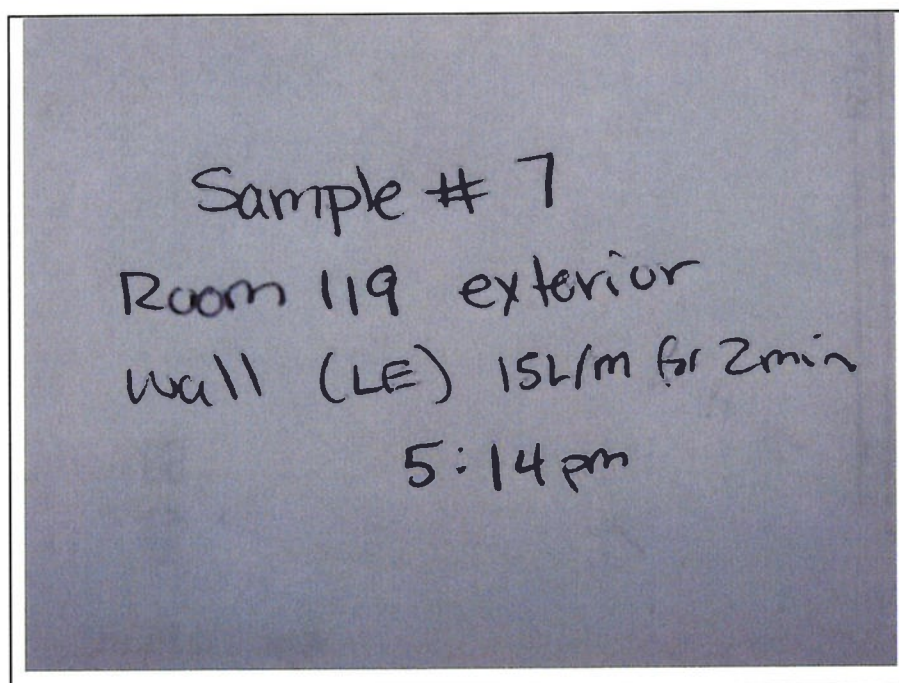 Sample # 7
Room 119 exterior
wall (LE) 15L/m for 2min
5:14pm